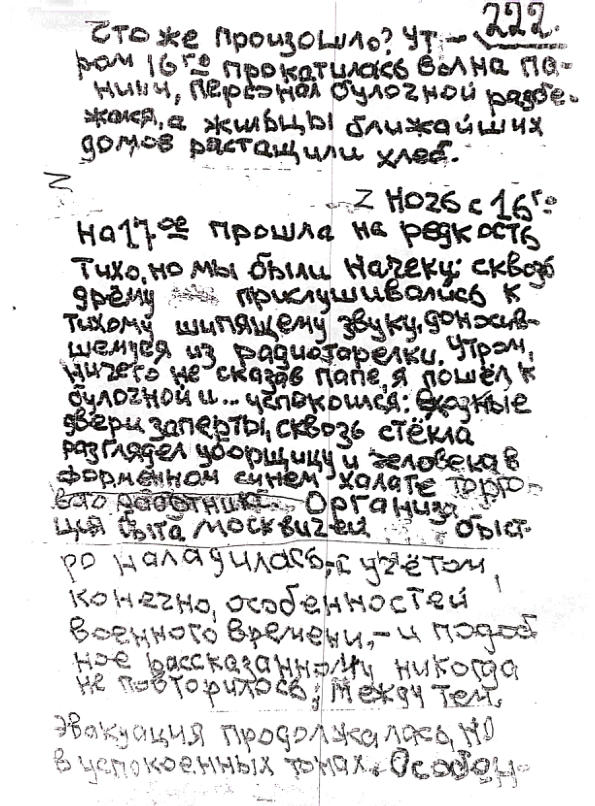 222.
Что же произошло? Ут-
ром 16го прокатилась волна па-
ники, персонал булочной разбе-
жался, а жильцы ближайших
домов растащили хлеб.
Z
Z Ночь с 16го
на 17ое прошла на редкость
тихо, но мы были начеку: сквозь
дрёму прислушивались к
тихому шипящему звуку, доносив-
шемуся из радиотарелки. Утром,
ничего не сказав папе, я пошёл к
булочной и... успокоился. Входные
двери заперты, сквозь стёкла
разглядел уборщицу и человека в
форменном синем халате торго-
вого работника. Организа
ция быта москвичей быст-
ро наладилась, с учётом,
конечно, особенностей
военного времени, – и подоб
ное рассказанному никогда
не повторилось; Между тем,
эвакуация продолжалась, но
в успокоенных тонах. Особен-